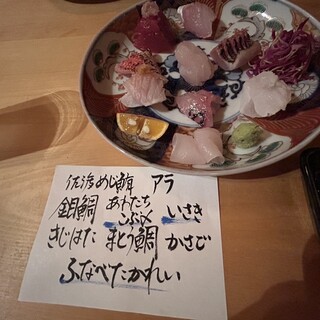 佐渡めじ鮪 アラ
金目鯛 あわたち こぶ〆 いさき
きじはた まとう鯛 かさご
ふなべたかれい